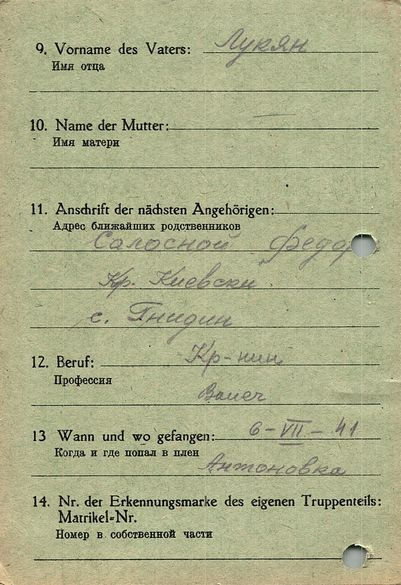 9. Vorname des Vaters: Лукян
Имя отца
10. Name der Mutter: —
Имя матери
11. Anschrift der nächsten Angehörigen:
Адрес ближайших родственников
Салосной Федор
Кр. Киевски
с. Гнидин
12. Beruf: Кр-нин
Профессия
Bauer
13 Wann und wo gefangen: 6-VII-41
Когда и где попал в плен
Антоновка
14. Nr. der Erkennungsmarke des eigenen Truppenteils:
Matrikel-Nr.
Номер в собственной части